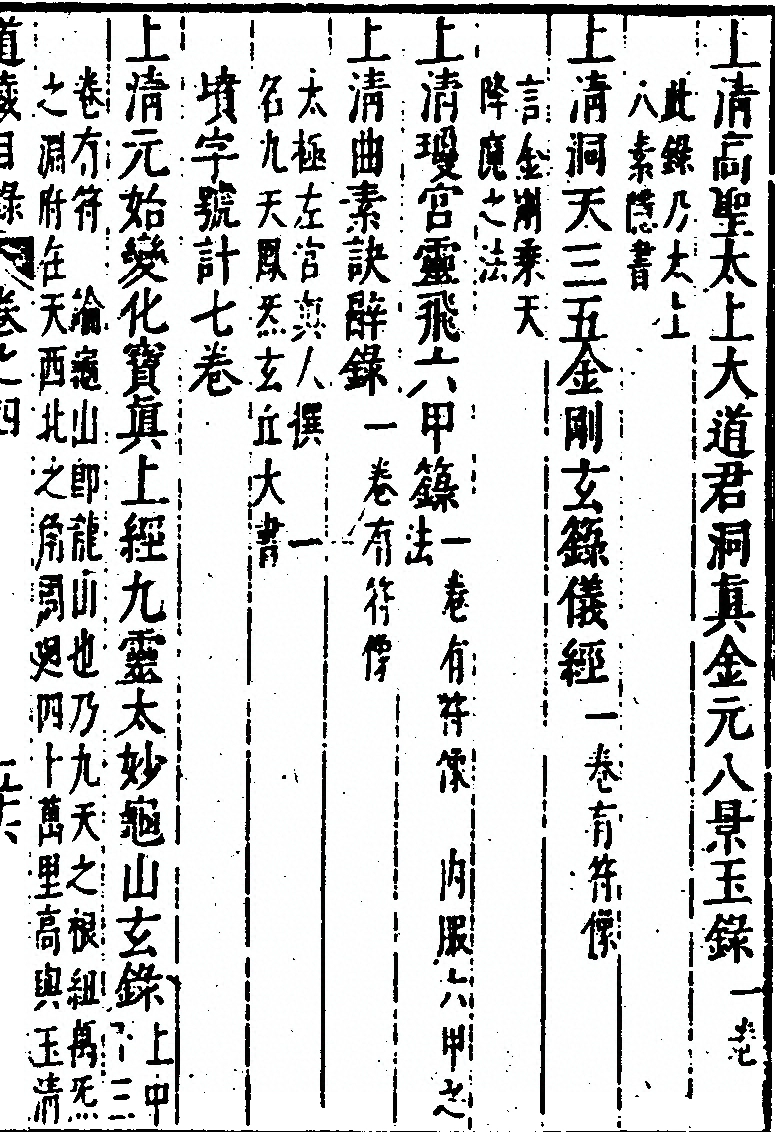 上清高聖太上大道君洞眞金元八景玉錄一卷
此錄乃太上
八素隱書
上清洞天三五金剛玄籙儀經一卷有符像
言金剛乘天
降魔之法
上清瓊宮靈飛六甲籙一卷有符像 內服六甲之
法
上清曲素訣辭錄一卷有符像
太極左宮眞人撰 一
名九天鳳炁玄丘大書
墳字號計七卷
上清元始變化寶眞上經九靈太妙龜山玄錄上中
下三
卷有符 論龜山即龍山也乃九天之根紐萬炁
之淵府在天西北之角周迴四十萬里高與玉清
道藏目錄 卷之四